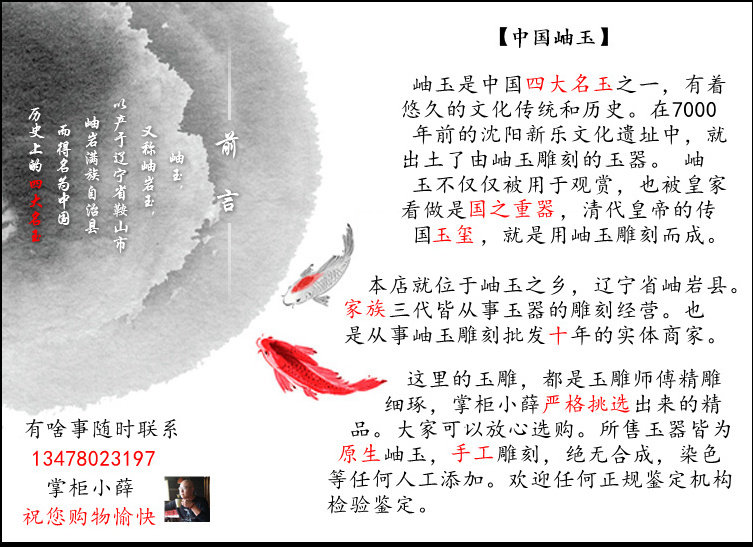 前言
岫玉
又称岫岩玉
以产于辽宁省鞍山市
岫岩满族自治县
而得名为中国
历史上的四大名玉
【中国岫玉】
岫玉是中国四大名玉之一，有着
悠久的文化传统和历史。在7000
年前的沈阳新乐文化遗址中，就
出土了由岫玉雕刻的玉器。 岫
玉不仅仅被用于观赏，也被皇家
看做是国之重器，清代皇帝的传
国玉玺，就是用岫玉雕刻而成。
本店就位于岫玉之乡，辽宁省岫岩县。
家族三代皆从事玉器的雕刻经营。也
是从事岫玉雕刻批发十年的实体商家。
这里的玉雕，都是玉雕师傅精雕
细琢，掌柜小薛严格挑选出来的精
品。大家可以放心选购。所售玉器皆为
原生岫玉，手工雕刻，绝无合成，染色
等任何人工添加。欢迎任何正规鉴定机构
检验鉴定。
有啥事随时联系
13478023197
掌柜小薛
祝您购物愉快